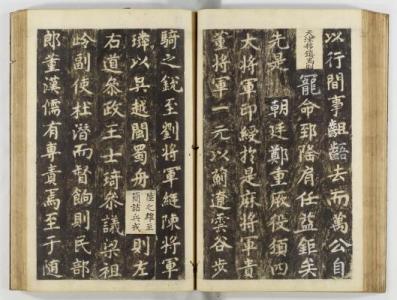 以行間事齟齬去而萬公自
天津移鎮焉則
寵命郅隆肩任益鉅矣
先是 朝廷鄭重厥役須四
大將軍印綬指是麻將軍貴
董將軍一元以薊遼溪谷步
騎之銳至劉將軍綎陳將軍
璘以吳越閩蜀舟
陸之雄至
簡詰兵戎
則左
右道參政王士琦參議梁祖
岭副使杜潛而督餉則民部
郎董漢儒有專責焉至于随